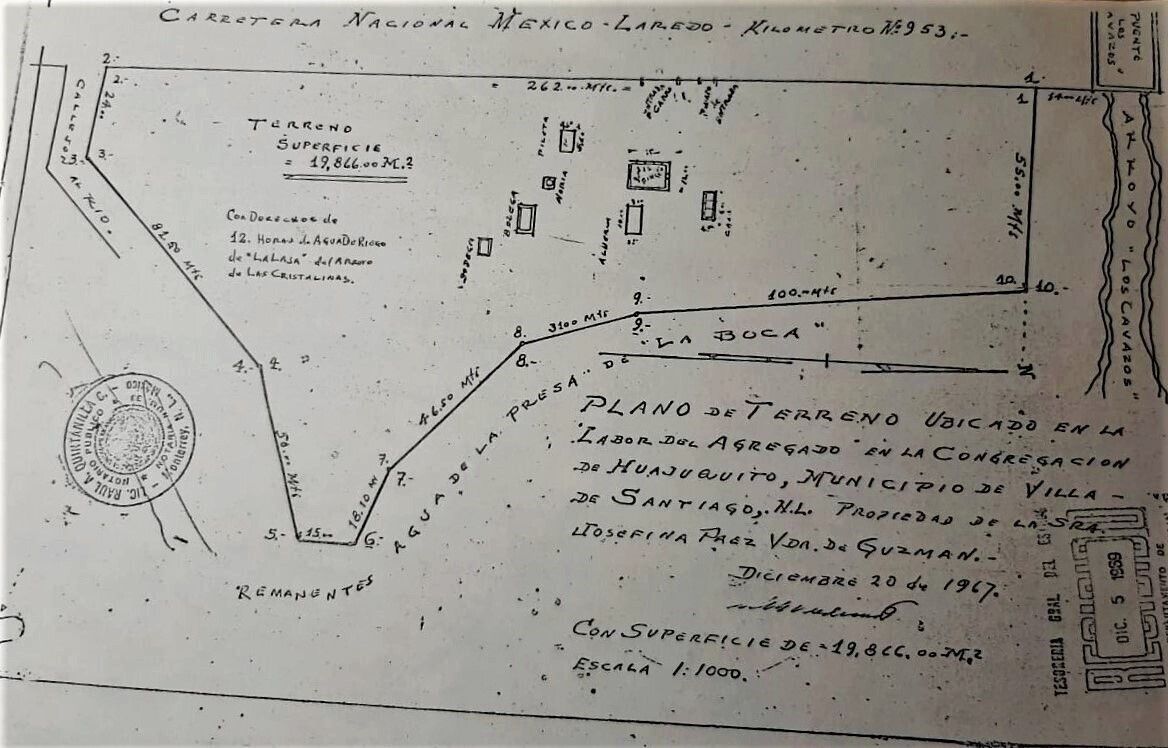 CARRETERA NACIONAL MEXICO-LAREDO- KILOMETRO Nº 953.-
PUENTE
"LOS
CAVAZOS"
2.-
2.-
1.
1
= 262.00 Mts. =
14.00 Mts
ENTRADA
CARRO
PUERTA
ENTRADA
CALLEJON
AL RIO.
24.00
3.-
3.-
TERRENO
SUPERFICIE
= 19,866.00 M.2
PILETA
NORIA
BODEGA
BODEGA
ALBERCA
CASA
55.00 Mts
ARROYO "LOS CAVAZOS"
CON DERECHOS de
12. HORAS de AGUA DE RIEGO
de "LA LAJA" del ARROYO
de LAS CRISTALINAS.
81.50 Mts
10.-
10.-
100.-Mts
9.-
9.-
31.00 Mts
8.
8.-
4.-
4.
46.50 Mts
AGUA DE LA PRESA" DE "LA BOCA"
N
50.00 Mts
7.
7.-
18.10 m
5.-
15.00
6.-
REMANENTES
LIC. RAUL A. QUINTANILLA C.
NOTARIO PUBLICO
Monterrey, N. L., México
PLANO DE TERRENO UBICADO EN LA
"LABOR DEL AGREGADO" EN LA CONGREGACION
DE HUAJUQUITO, MUNICIPIO DE VILLA -
DE SANTIAGO, N.L. PROPIEDAD DE LA SRA
JOSEFINA PAEZ VDA. DE GUZMAN.-
DICIEMBRE 20 de 1967.
CON SUPERFICIE DE =19,866.00 M.2
ESCALA 1:1000.
TESORERIA GRAL DEL
DIC. 5 1969